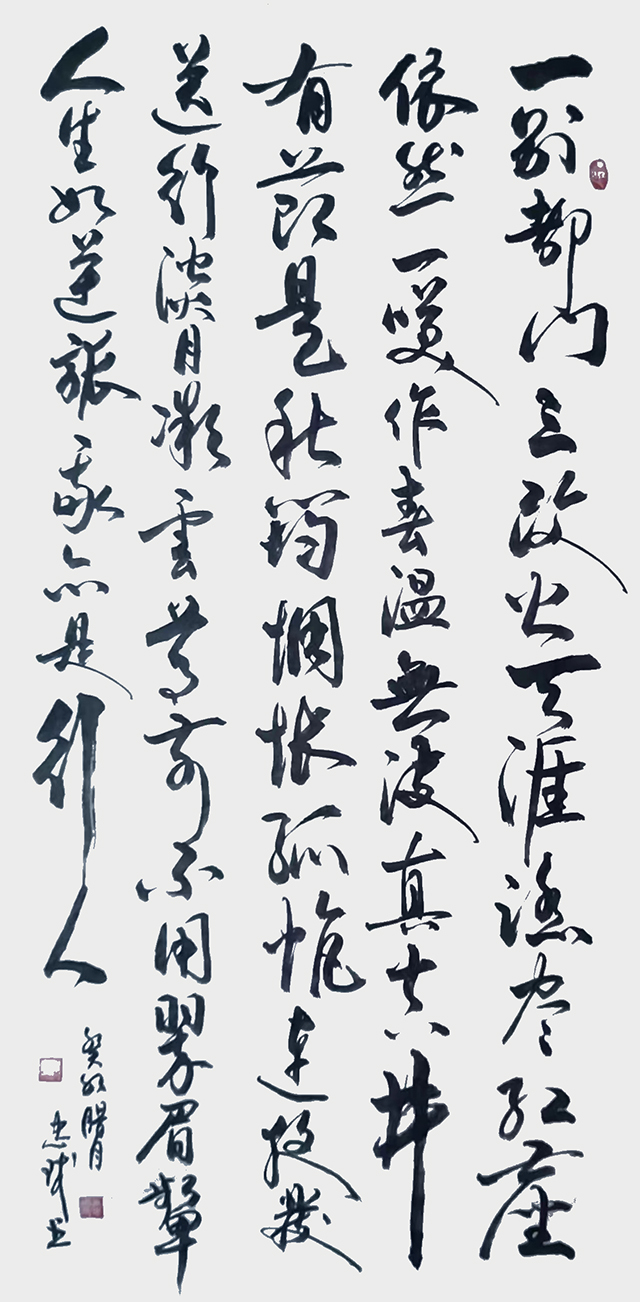 一别都门三改火天涯踏尽红塵
依然一咲作春温無波真古井
有莭是秋筠惆悵孤帆連夜發
送行淡月微雲尊前不用翠眉顰
人生如逆旅我亦是行人
癸卯腊月